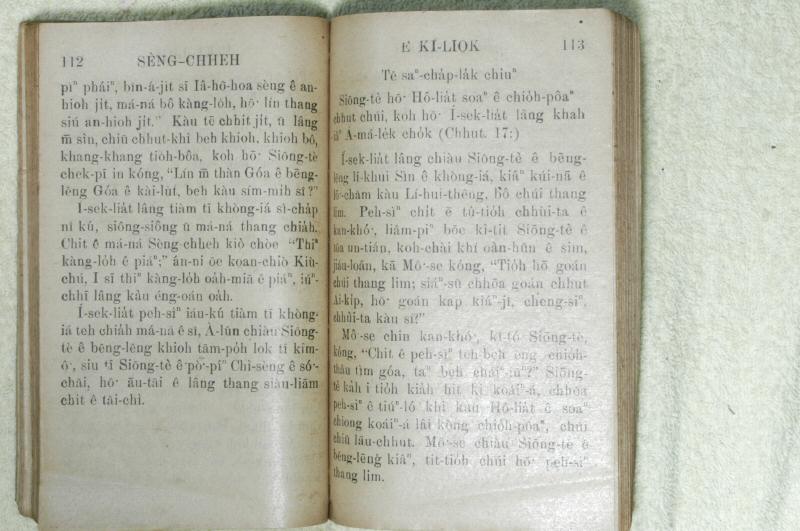 112 SÈNG-CHHEH
piⁿ pháiⁿ, bîn-á-jit sī Iâ-hô-hoa sèng ê an-
hioh jit, má-ná bô kàng-lóh, hō͘ lín thang
siú an-hioh jit." Kàu tē chhit jit, ū lâng
m̄ sìn, chiū chhut-khì beh khioh, khioh bô,
khang-khang tióh-bôa, koh hō͘ Siōng-tè
chek-pī in kóng, "Lín m̄ thàn Góa ê bēng-
lēng Góa ê kài-lút, beh kàu sím-mih sî?"
I-sek-liát lâng tiàm tī khòng-iá sì-cháp
nî kú, siông-siông ū má-ná thang chiáh.
Chit ê má-ná Sèng-chheh kiò chòe "Thiⁿ
kàng-lóh ê piáⁿ;" án-ni ōe koan-chiò Kiù-
chú, I sī thiⁿ kàng-lóh oáh-miā ê piáⁿ, iúⁿ-
chhī lâng kàu éng-oán oáh.
Í-sek-liát peh-sìⁿ iáu-kú tiàm tī khòng-
iá teh chiáh má-ná ê sî, A-lûn chiàu Siōng-
tè ê bēng-lēng khioh tām-póh lok tī kim-
ò͘, siu tī Siōng-tè ê pò͘-pîⁿ Chì-sèng ê só͘-
chāi, hō͘ āu-tāi ê lâng thang siàu-liām
chit ê tāi-chì.
Ê KÌ-LIOK 113
Tē saⁿ-cháp-lák chiuⁿ
Siōng-tè hō͘ Hô-liát soaⁿ ê chióh-pôaⁿ
chhut chúi, koh hō͘ Í-sek-liát lâng khah
iâⁿ A-má-lék chók (Chhut. 17:)
Í-sek-liát lâng chiàu Siōng-tè ê bēng-
lēng lī-khui Sìn ê khòng-iá, kiâⁿ kúi-nā ê
lō͘-chām kàu Lī-hui-thêng, bô chúi thang
lim. Peh-sìⁿ chit ē tú-tióh chhùi-ta ê
kan-khó͘, liám-piⁿ bōe kì-tit Siōng-tè ê
tōa un-tián, koh-chài khí oàn-hūn ê sim,
jiáu-loān, kā Mô͘-se kóng, "Tióh hō͘ goán
chúi thang lim; siáⁿ-sū chhōa goán chhut
Ai-kip, hō͘ goán kap kiáⁿ-jî, cheng-siⁿ,
chhùi-ta kàu sí?"
Mô͘-se chin kan-khó͘, kî-tó Siōng-tè,
kóng, "Chit ê peh-sìⁿ teh-beh ēng chióh-
thâu tìm góa, taⁿ beh cháiⁿ-iūⁿ?" Siōng-
tè kàh i tióh kiáh hit ki koáiⁿ-á, chhōa
peh-sìⁿ ê tiúⁿ-ló khì kàu Hô-liát ê soaⁿ
chiong koáiⁿ-á lâi kòng chióh-pôaⁿ, chúi
chiū lâu-chhut. Mô͘-se chiàu Siōng-tè ê
bēng-lēng kiâⁿ, tit-tióh chúi hō͘ peh-sìⁿ
thang lim.